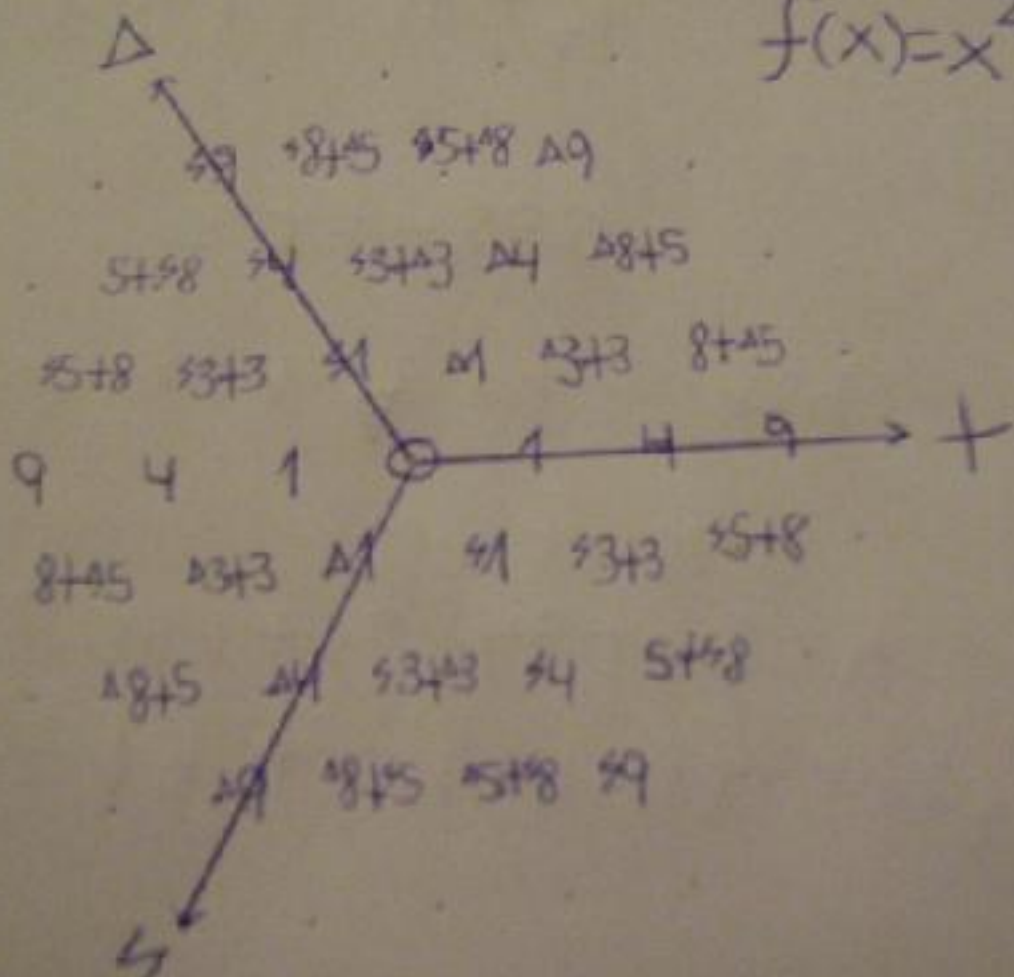 f(x)=x
Δ
ϟ9 ϟ8+Δ5 ϟ5+Δ8 Δ9
5+ϟ8 ϟ4 ϟ3+Δ3 Δ4 Δ8+5
ϟ5+8 ϟ3+3 ϟ1 Δ1 Δ3+3 8+Δ5
9 4 1 1 4 9 +
8+Δ5 Δ3+3 Δ1 ϟ1 ϟ3+3 ϟ5+8
Δ8+5 Δ4 ϟ3+Δ3 ϟ4 5+ϟ8
Δ9 Δ8+ϟ5 Δ5+ϟ8 ϟ9
ϟ